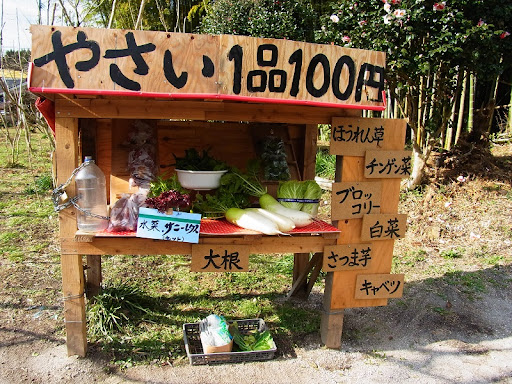 やさい1品100円
ほうれん草
チンゲン菜
ブロッ
コリー
白菜
さつま芋
キャベツ
大根
水菜